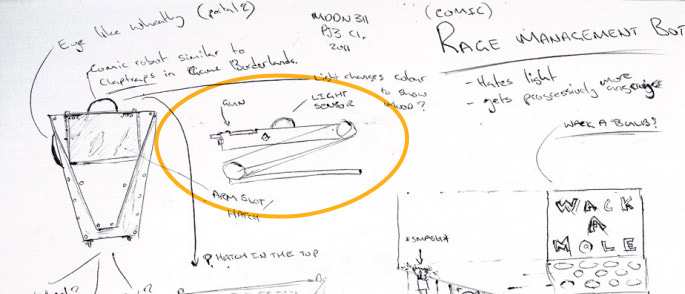 Eye like Wheatly (portal 2)
MODN 311
PJ3 C1.
2011
(COMIC)
RAGE MANAGEMENT BOT
Comic robot similar to
claptraps in Game Borderlands.
- Hates light
- gets progressively more
Light changes colour
to show
MOOD?
GUN
LIGHT
SENSOR
WACK A BULB?
ARM SLOT/
HATCH
HATCH IN THE TOP
WACK
A
MOLE
*SMASH*